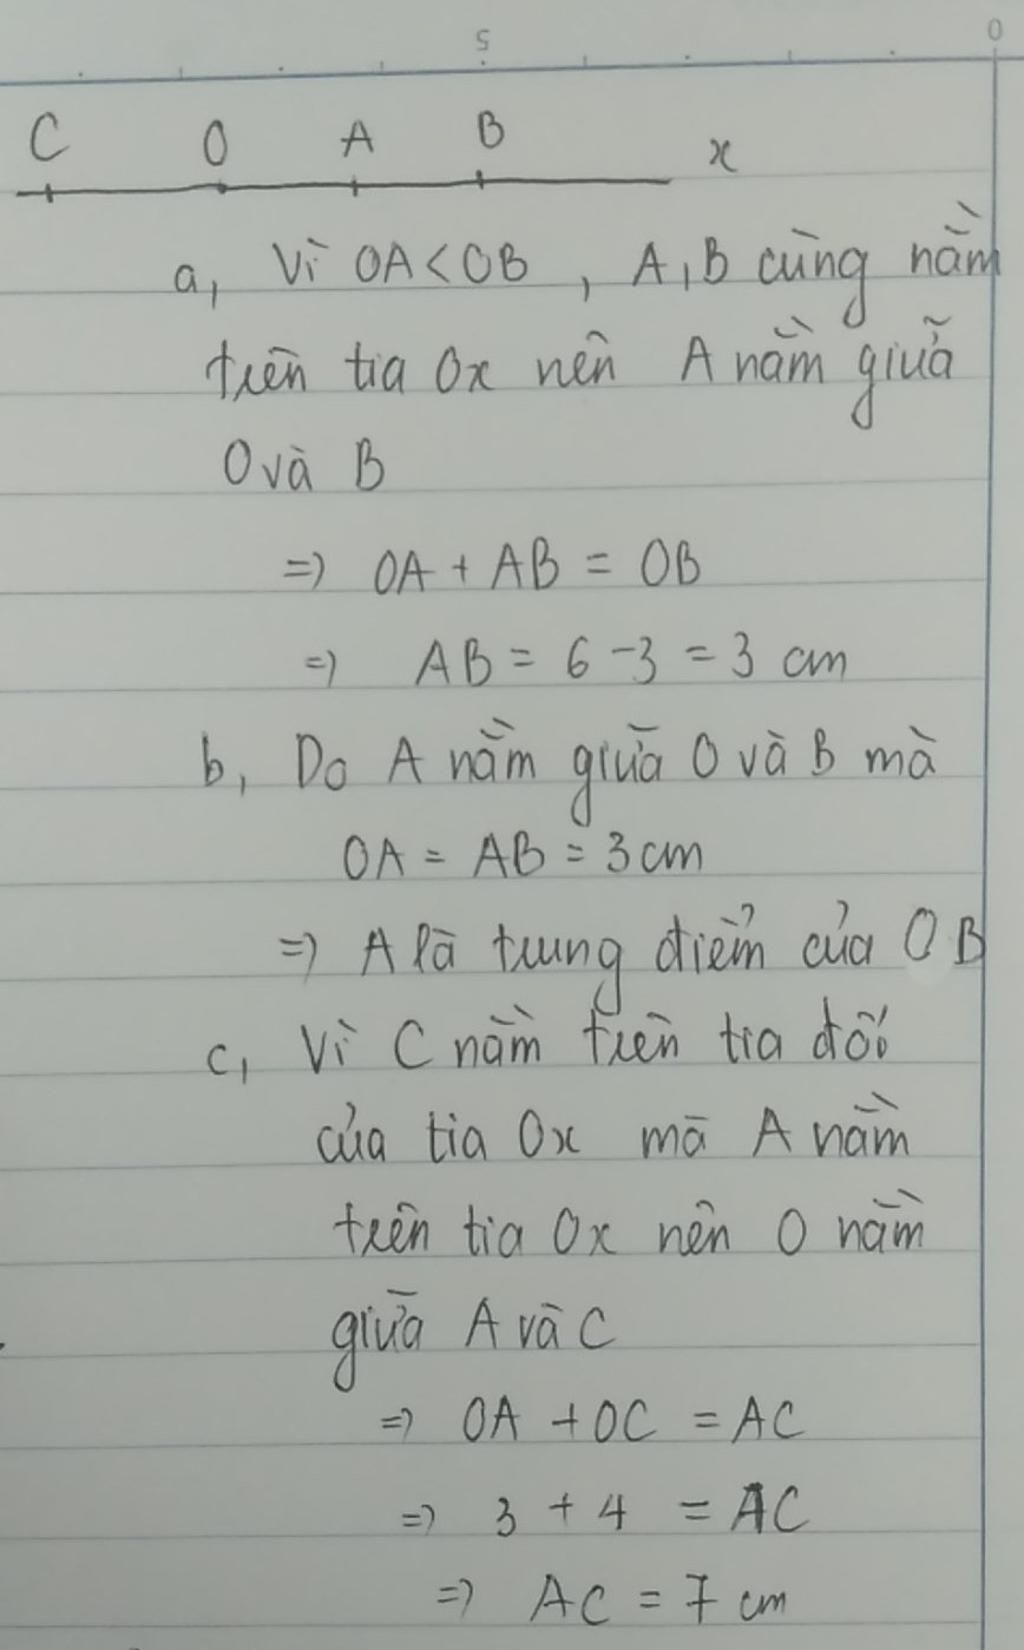 5 0
C O A B x
a, Vì OA < OB, A, B cùng nằm
trên tia Ox nên A nằm giữa
O và B
=> OA + AB = OB
=> AB = 6 - 3 = 3 cm
b, Do A nằm giữa O và B mà
OA = AB = 3 cm
=> A là trung điểm của OB
c, Vì C nằm trên tia đối
của tia Ox mà A nằm
trên tia Ox nên O nằm
giữa A và C
=> OA + OC = AC
=> 3 + 4 = AC
=> AC = 7 cm